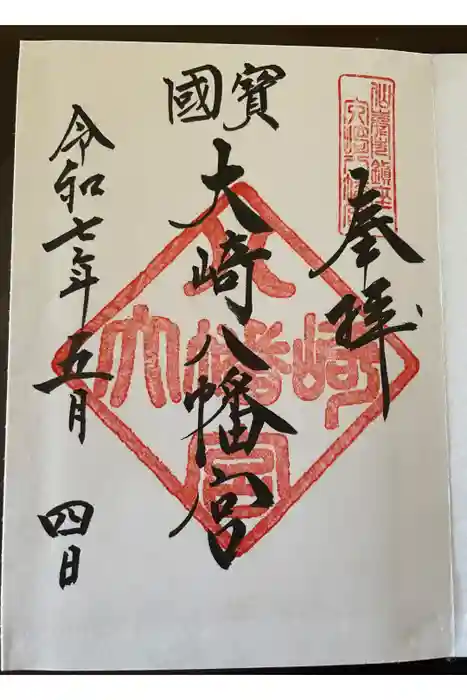 奉拝
國寶
大崎八幡宮
令和七年五月四日
大崎八幡宮